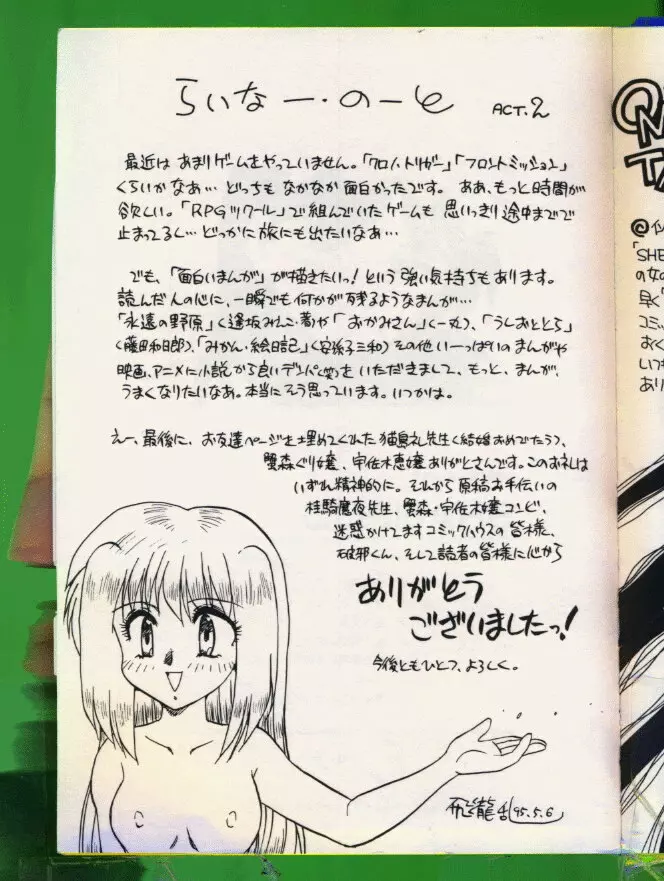 らいなー・のーと ACT.2
最近は あまりゲームをやっていません。「クロノ・トリガー」「フロントミッション」
くらいかなあ… どっちも なかなか 面白かったです。 ああ、もっと 時間が
欲しい。「RPGツクール」で組んでいたゲームも 思いっきり 途中までで
止まってるし… どっかに 旅にも出たいなあ…
でも、「面白いまんが」が描きたいっ! という 強い気持ちもあります。
読んだ人の心に、一瞬でも何かが 残るようなまんが…
「永遠の野原」〈逢坂みえこ・著〉や「おかみさん」〈一丸〉、「うしおととら」
〈藤田和日郎〉、「みかん・絵日記」〈安孫子三和〉その他 いーっぱいのまんがや
映画、アニメに小説から良いデンパ〈笑〉を いただきまして、もっと、まんが、
うまくなりたいなあ。本当にそう思っています。いつかは。
えー、最後に、お友達ページを埋めてくれた 猫島礼先生〈結婚おめでたう〉、
蟹森ぐり嬢、宇佐木恵嬢ありがとさんです。このお礼は
いずれ精神的に。それから 原稿お手伝いの
桂騎魔夜先生、蟹森・宇佐木嬢コンビ、
迷惑かけてますコミックハウスの 皆様、
破邪くん、そして読者の皆様に心から
ありがとう
ございましたっ!
今後ともひとつ、よろしく。
飛龍乱 '95.5.6
「SHE
の女の
早く
コミッ
おく
いつも
あり